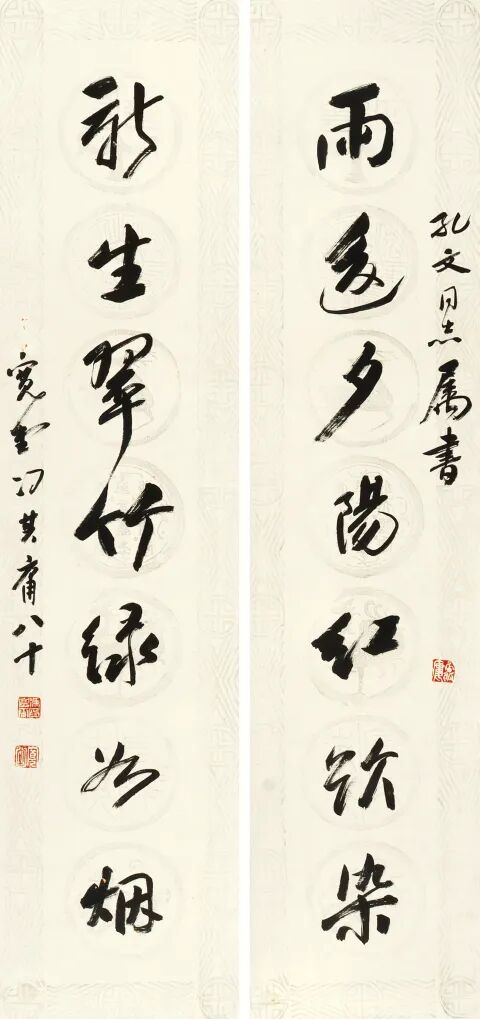 孔文同志属書
雨後夕陽红欲染
新生翠竹绿烟
宽堂冯其庸八十